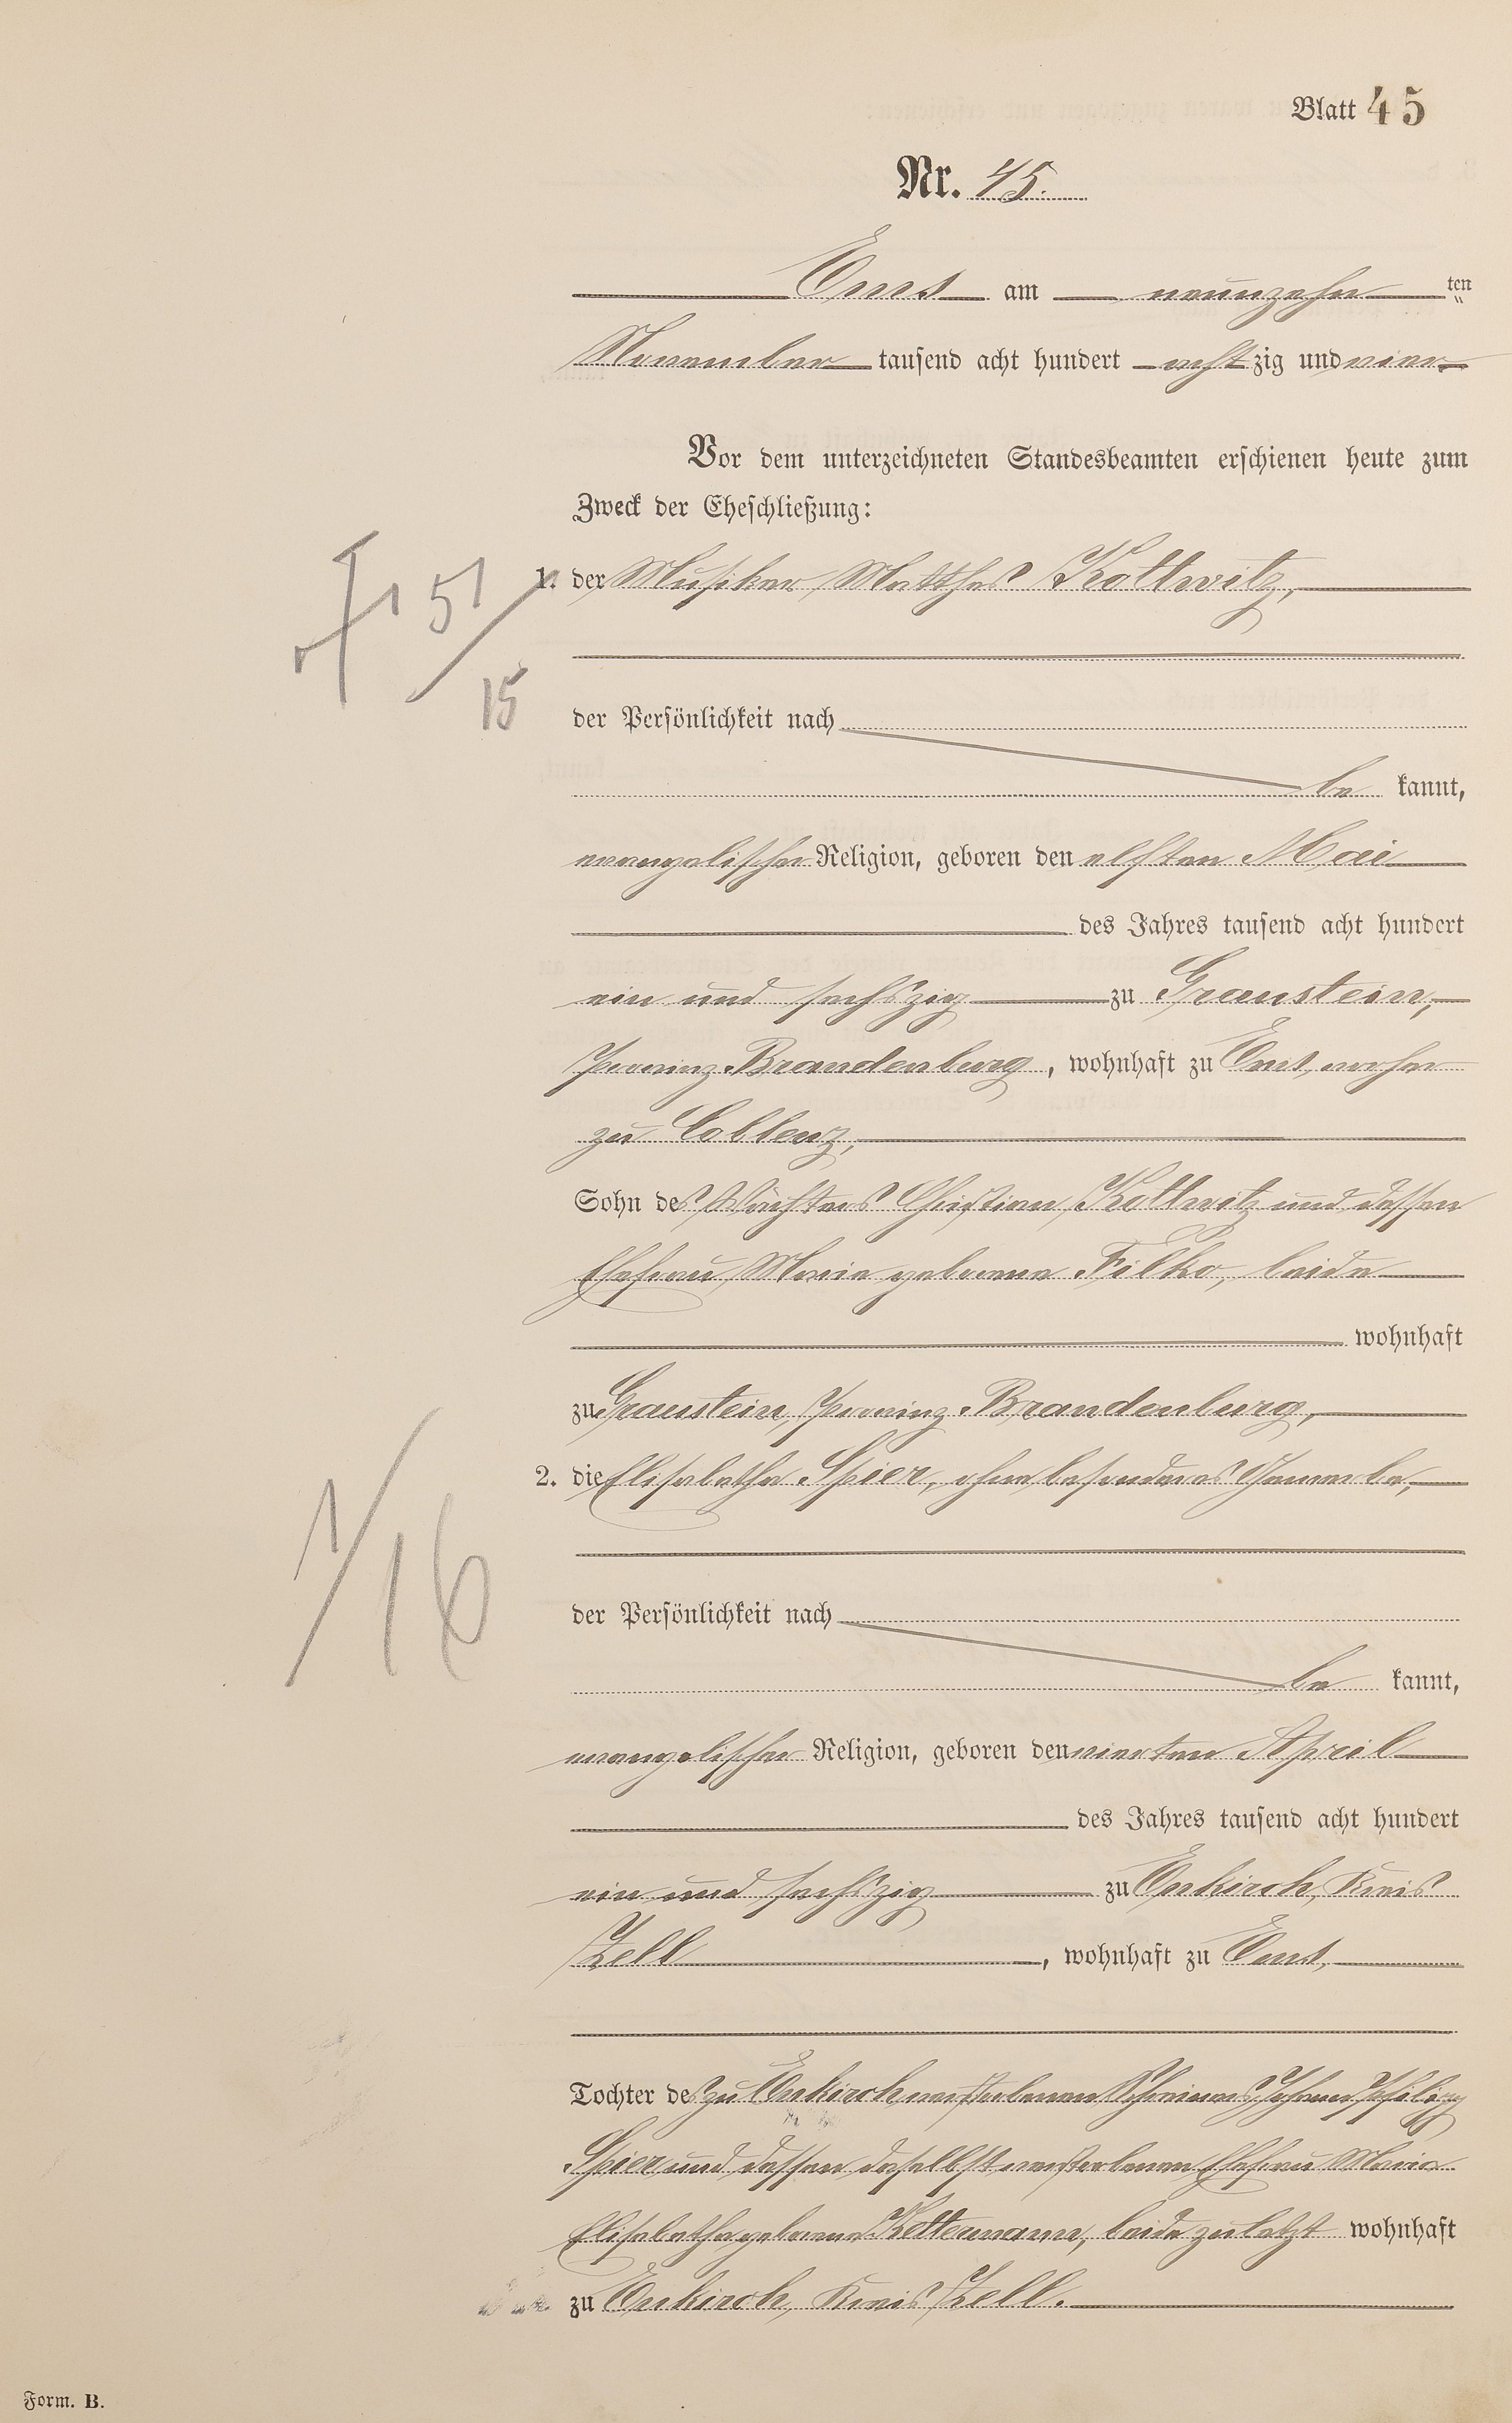 Blatt 45
Nr. 45.
Ems am neunzehn ten
November tausend acht hundert acht zig und vier
Vor dem unterzeichneten Standesbeamten erschienen heute zum
Zweck der Eheschließung:
1. der Musiker Matthes Kottwitz,
der Persönlichkeit nach
be kannt,
evangelischer Religion, geboren den elften Mai
des Jahres tausend acht hundert
ein und sechszig zu Graustein,
Provinz Brandenburg, wohnhaft zu Ems, vorher
zu Coblenz,
Sohn des Christian Kottwitz und dessen
Ehefrau Maria geborene Filko, beide
wohnhaft
zu Graustein, Provinz Brandenburg,
2. die Elisabetha Spier, ohne besonderes Gewerbe,
der Persönlichkeit nach
be kannt,
evangelischer Religion, geboren den vierten April
des Jahres tausend acht hundert
ein und sechszig zu Enkirch, Kreis
Zell, wohnhaft zu Ems,
Tochter des zu Enkirch verstorbenen Schreiners Johann Philipp
Spier und dessen daselbst verstorbenen Ehefrau Maria
Elisabetha geborene Kettermann, beide zuletzt wohnhaft
zu Enkirch, Kreis Zell.
1 51/15
1/16
Form. B.